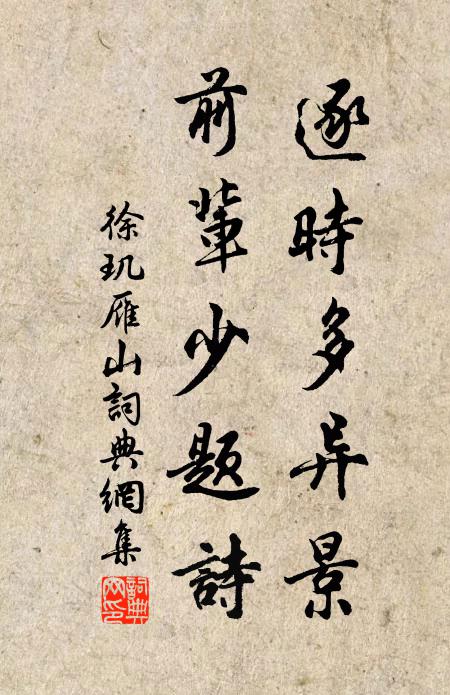 逐時多异景
前輩少題詩
徐玑雁山詞典網集
詞典
网印